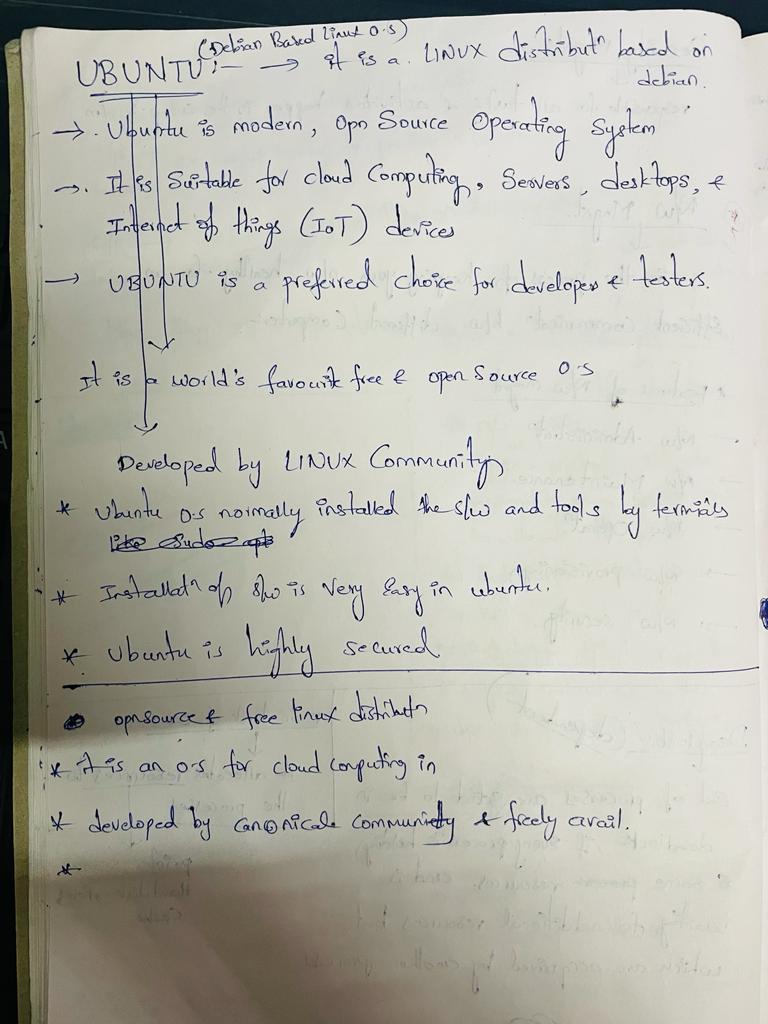 (Debian Based Linux O.S)
UBUNTU :- → it is a. LINUX distributn based on
debian.
→ . Ubuntu is modern, Opn Source Operating System
→ . It is Suitable for cloud Computing, Servers, desktops, &
Internet of things (IoT) devices
→ UBUNTU is a preferred choice for developers & testers.
It is a world's favourite free & open Source O.S
Developed by LINUX Community
* Ubuntu o.s normally installed the s/w and tools by
like Sudo apt
* Installatn of s/w is Very Easy in ubuntu.
* Ubuntu is highly secured
opnsource & free linux distributn
* it is an o.s for cloud computing in
* developed by canonicale community & freely avail.
*